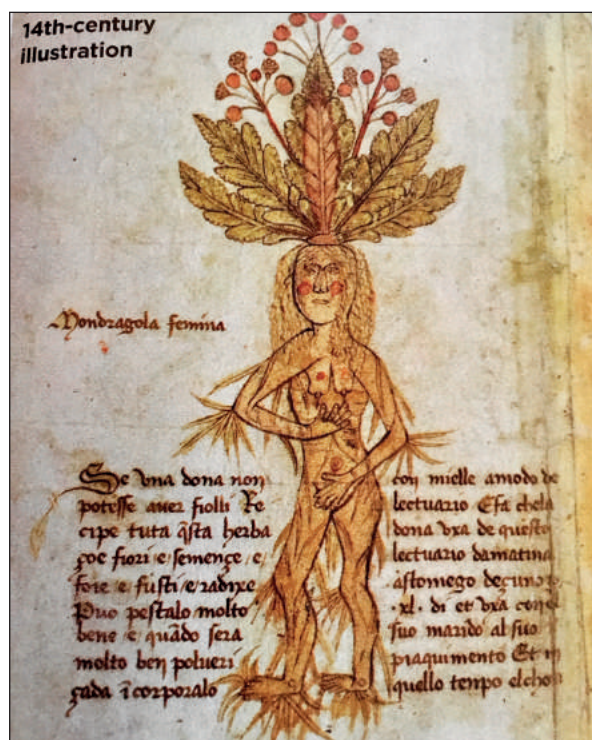 14th-century
illustration
Mondragola femina
Se vna dona non
potesse auer fiolli Re
cipe tuta q̃sta herba
çoe fiori e semençe e
foie e fusti e radixe
Puo pestalo molto
bene e quãdo sera
molto ben polueri
çada ĩcorporalo
con mielle amodo de
lectuario E fa chela
dona vxa de questo
lectuario damatina
astomego deçuno
.xl. di et vxa con
suo marido al suo
piaquimento Et
quello tempo elcho